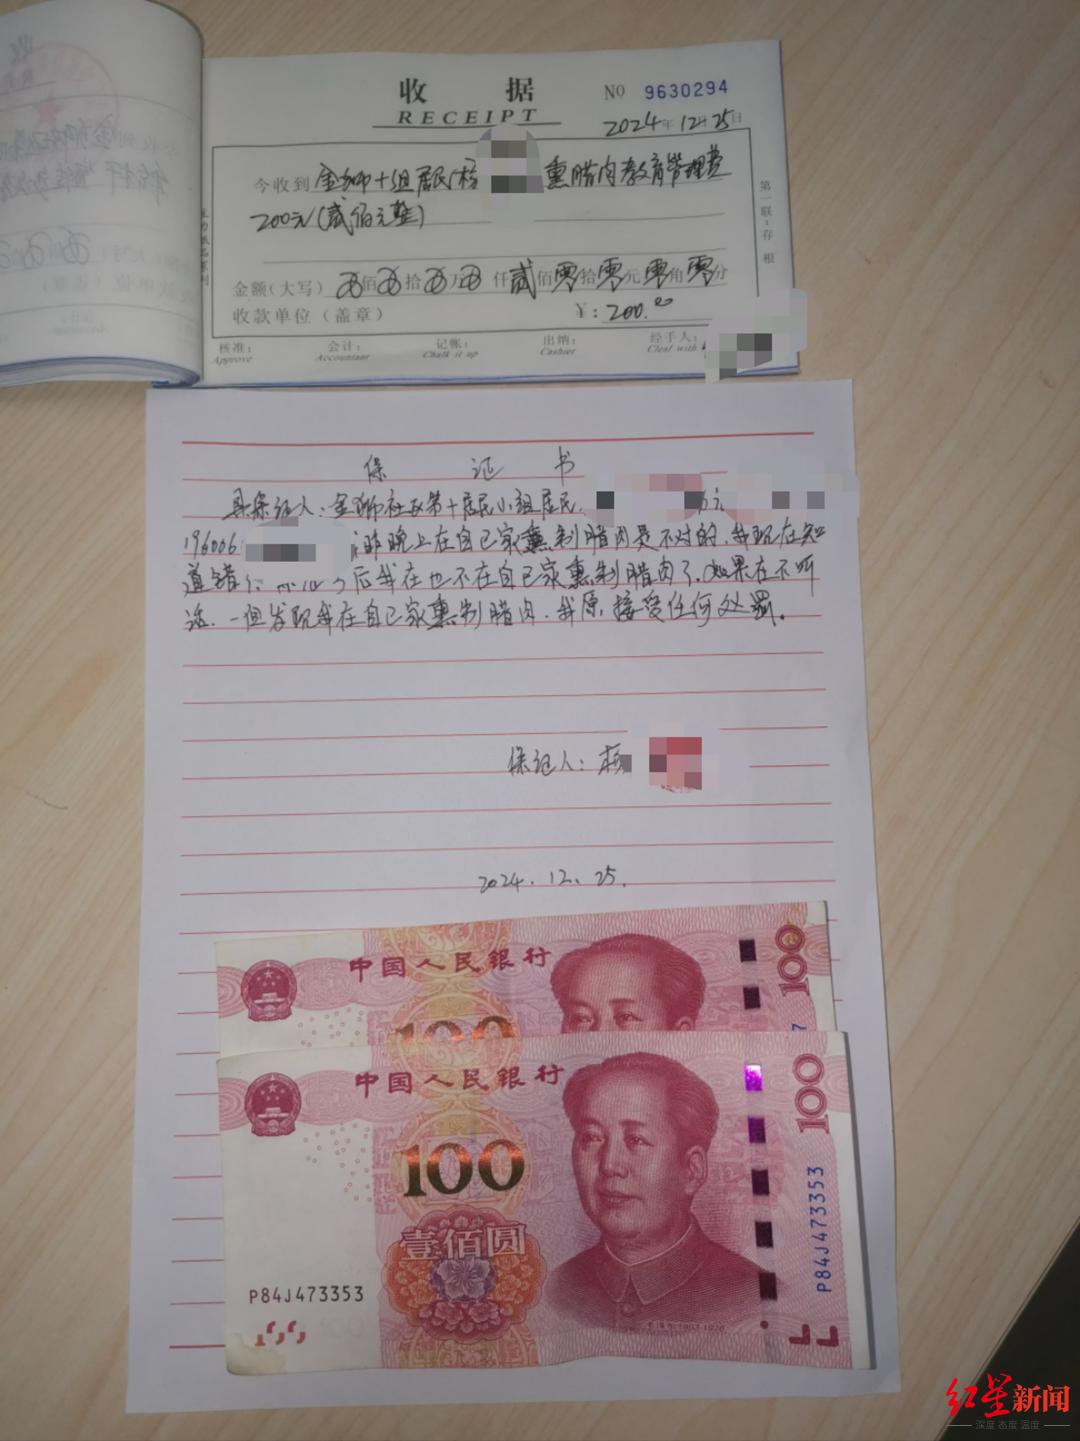 收 据
RECEIPT
№ 9630294
2024年12月25日
今收到 金狮十组居民 熏腊肉教育管理费
200元(贰佰元整)
金额(大写) 佰 拾 万 仟 贰佰零拾零元零角零分
收款单位（盖章）
¥：200.00
核准： 会计： 记帐： 出纳： 经手人：
Approve Accountant Chalk it up Cashier Cleal with
第一联：存根
保 证 书
具保证人：金狮社区第十居民小组居民
196006 昨晚上在自已家熏制腊肉是不对的．我现在知
道错 后我在也不在自已家熏制腊肉了．如果在不听
话．一但发现我在自已家熏制腊肉．我原接受任何处罚。
保证人：
2024．12．25．
中国人民银行
100
100
中国人民银行
100
100
壹佰圆
P84J473353
P84J473353
红星新闻
深度 态度 温度